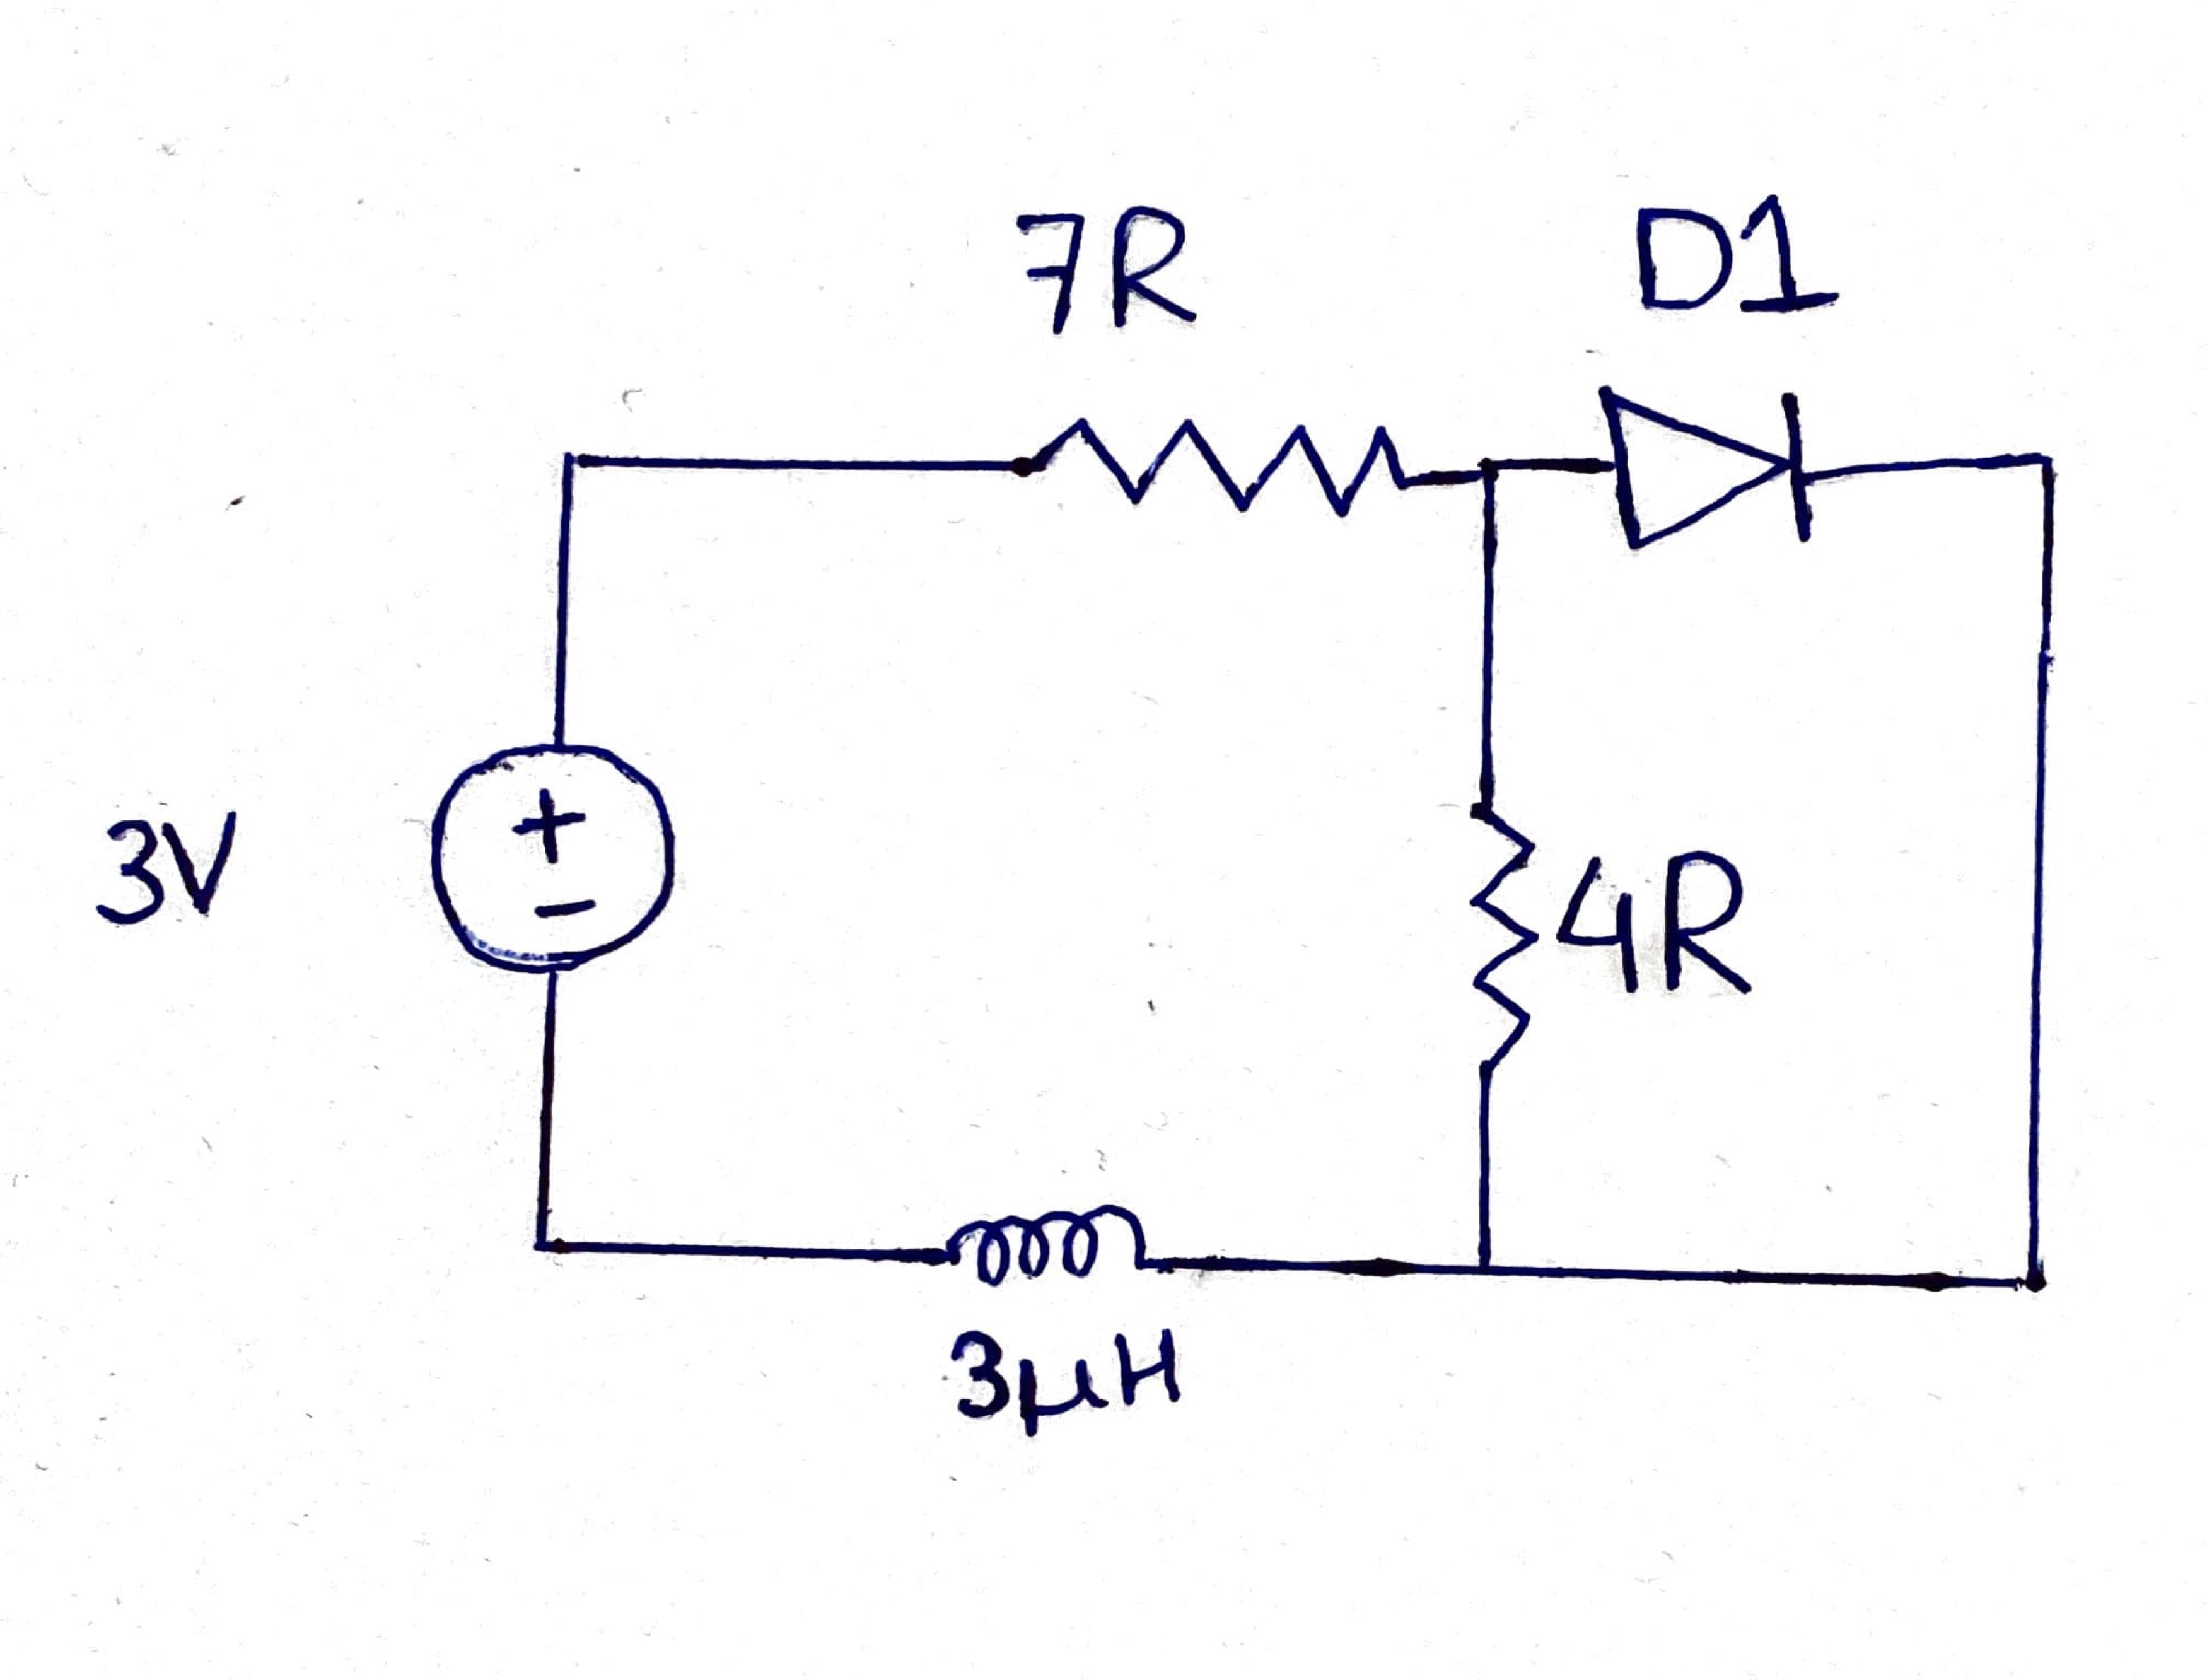 7R
D1
3V
+
−
4R
3μH